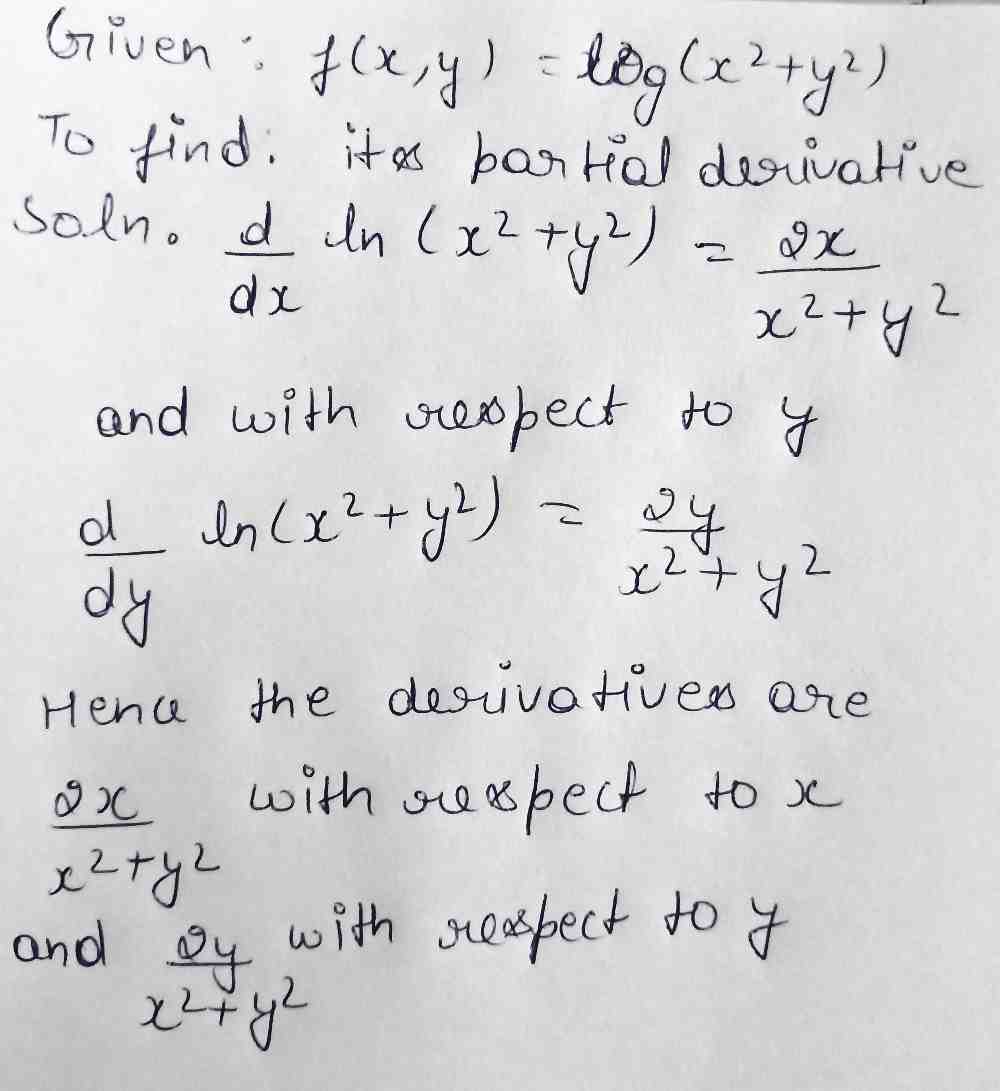 Given : f(x,y) = log(x²+y²)
To find: its partial derivative
Soln. d/dx ln (x²+y²) = 2x/x²+y²
and with respect to y
d/dy ln(x²+y²) = 2y/x²+y²
Hence the derivatives are
2x/x²+y² with respect to x
and 2y/x²+y² with respect to y